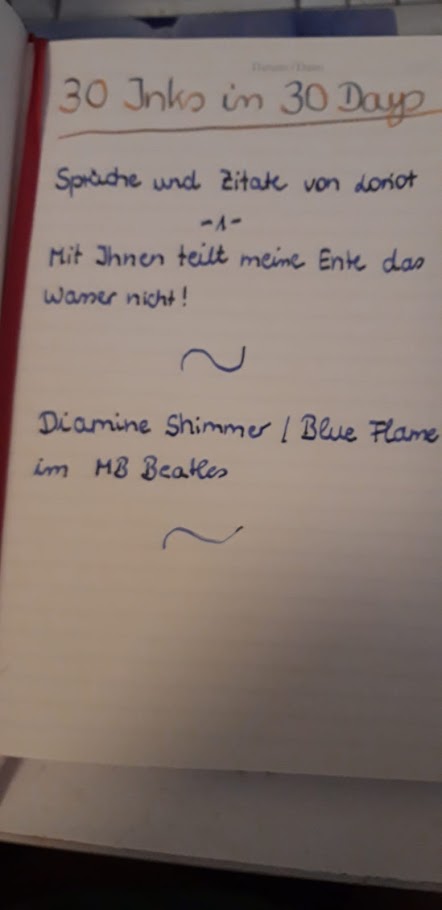 Datum / Date:
30 Inks in 30 Days
Sprüche und Zitate von Loriot
-1-
Mit Ihnen teilt meine Ente das
Wasser nicht!
Diamine Shimmer / Blue Flame
im MB Beatles